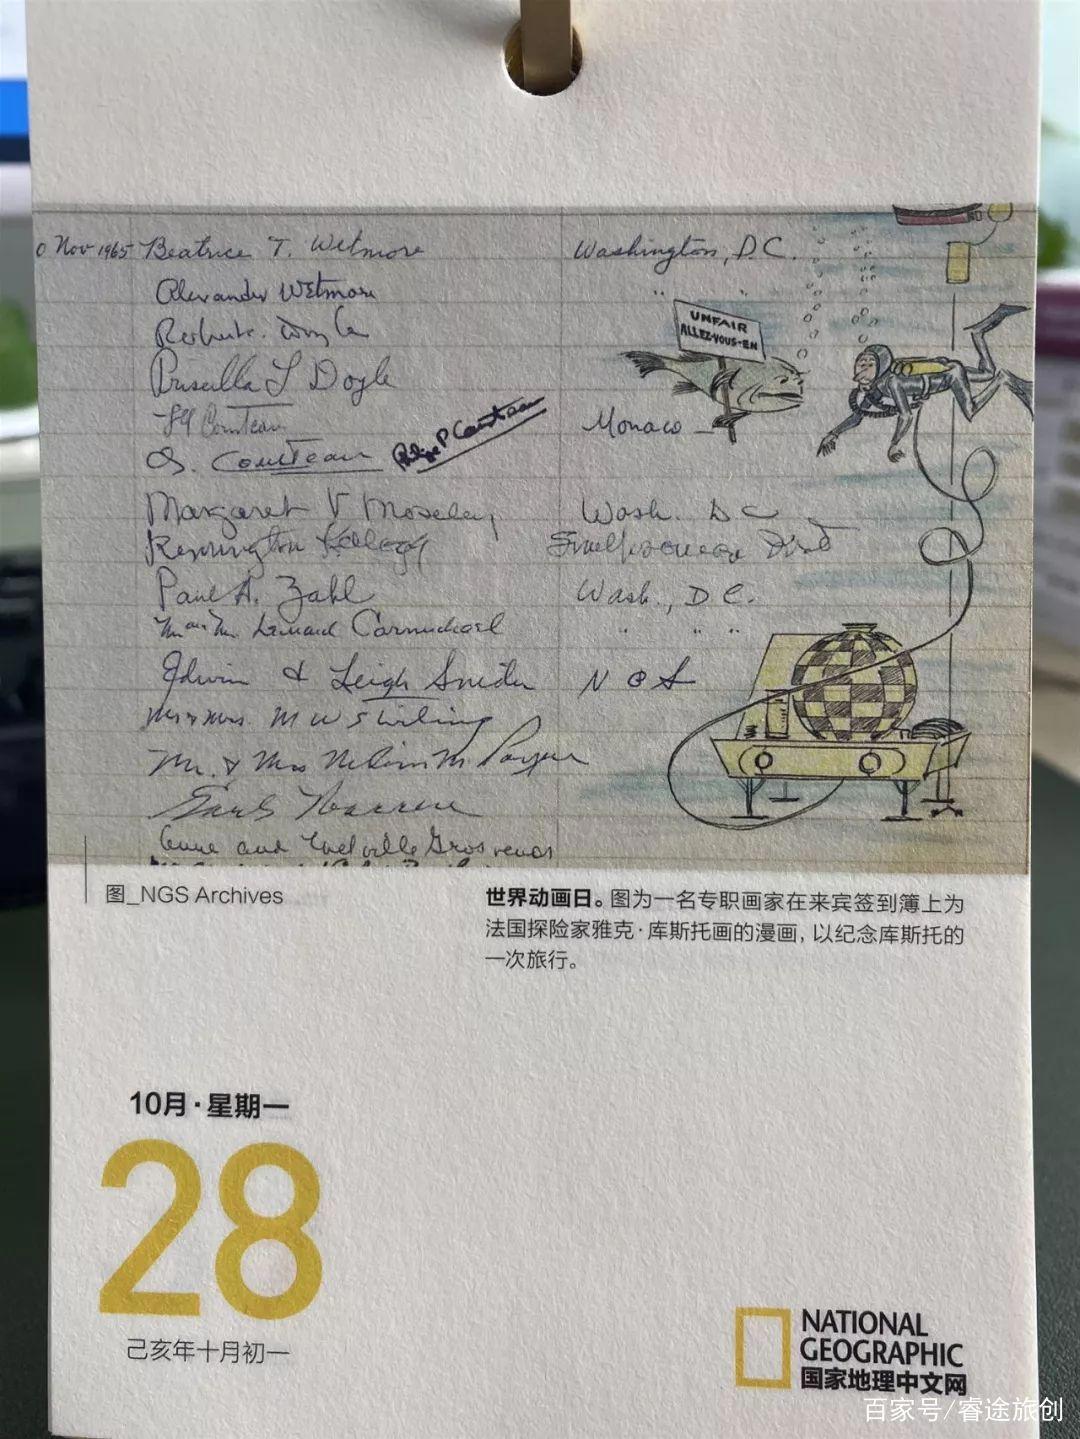 0 Nov 1965 Beatrice T. Wetmore Washington, D.C.
Alexander Wetmore " "
UNFAIR
ALLEZ-VOUS-EN
Priscilla L Doyle
Cousteau
S. Cousteau Philippe P Cousteau Monaco
Margaret V Moseley Wash. D C
Remington Kellogg
Paul A. Zahl Wash., D.C.
Leonard Carmichael " " "
Edwin & Leigh Snider N G S
Mr & Mrs. M W Stirling
Mr. & Mrs Melvin M. Payne
Earl Warren
Anne and Melville Grosvenor
图_NGS Archives
世界动画日。图为一名专职画家在来宾签到簿上为
法国探险家雅克·库斯托画的漫画，以纪念库斯托的
一次旅行。
10月·星期一
28
己亥年十月初一
NATIONAL
GEOGRAPHIC
国家地理中文网
百家号/睿途旅创